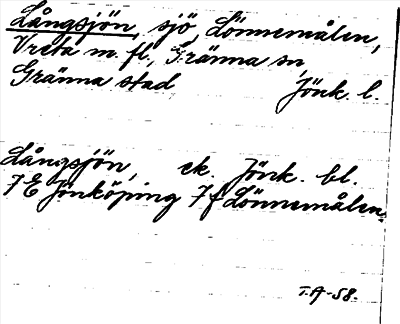 Långsjön, sjö, Lönnemålen,
Vreta m. fl., Gränna sn,
Gränna stad Jönk. l.
Långsjön, ek. Jönk. bl.
7E Jönköping 7f Lönnemålen.
T.A-58.